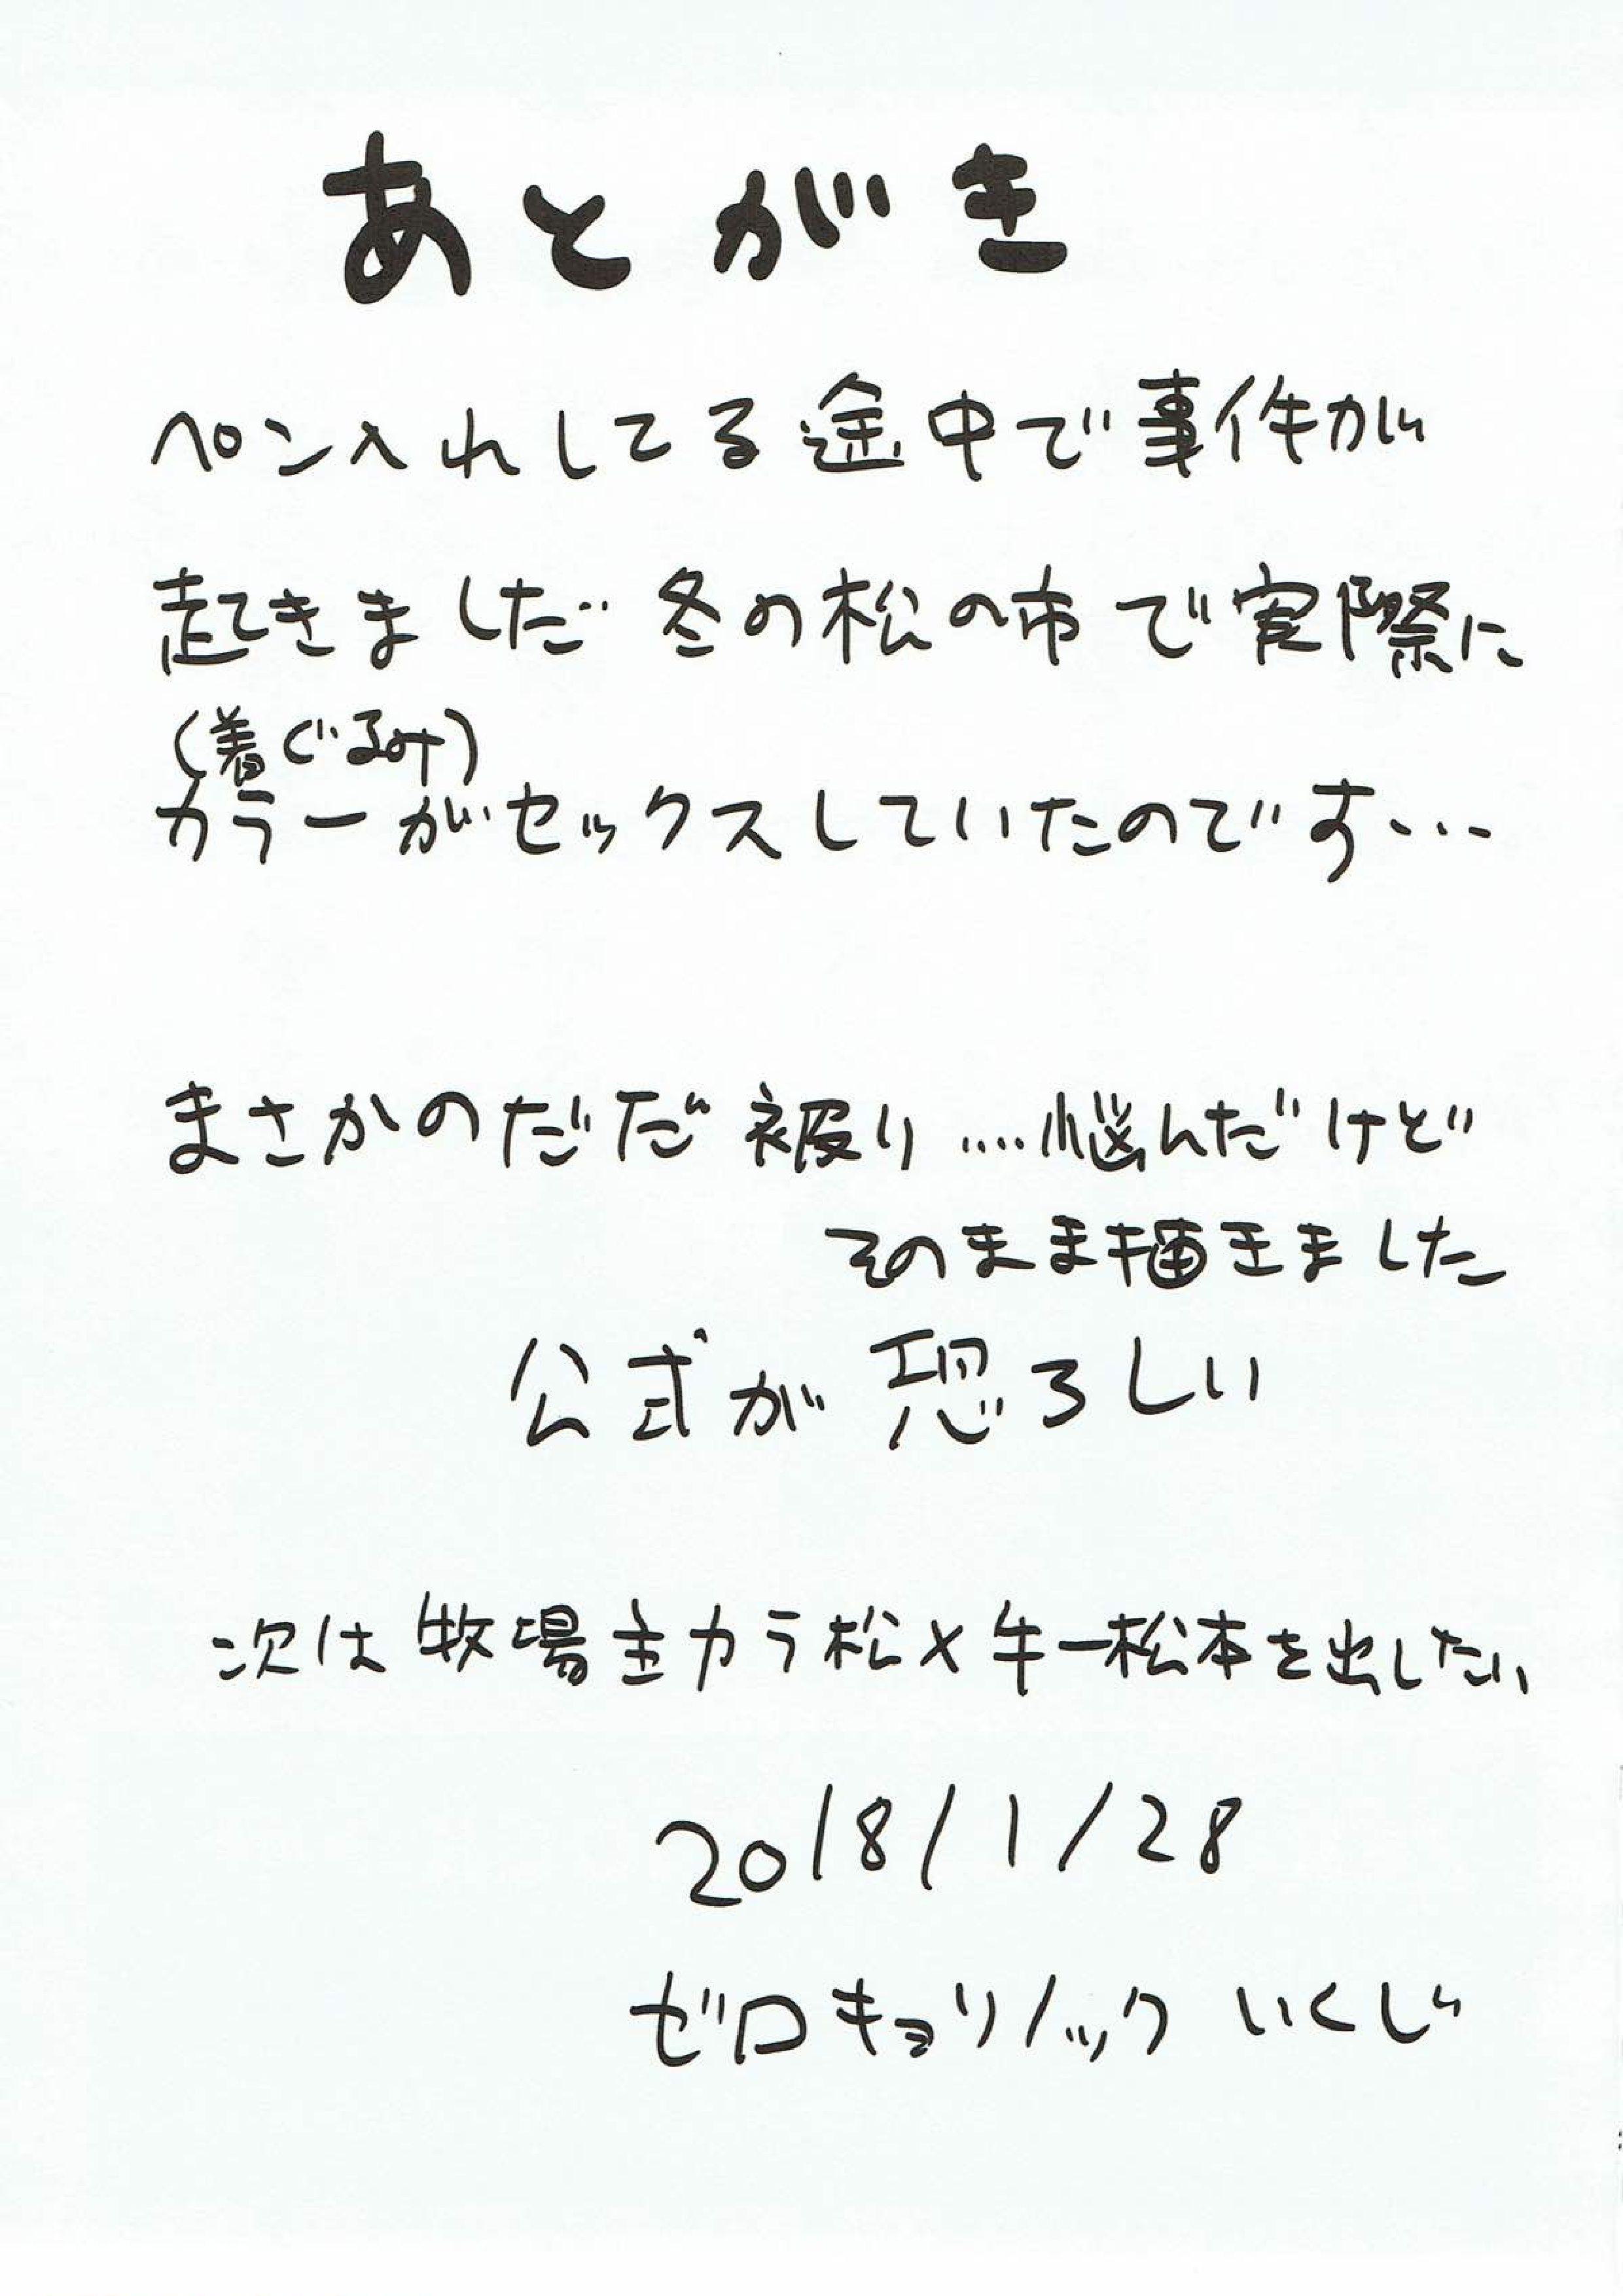 あとがき
ペン入れしてる途中で事件が
起きました‥冬の松の市で実際に
(着ぐるみ)
カラーがセックスしていたのです…
まさかのだだ被り....悩んだけど
そのまま描きました
公式が恐ろしい
次は牧場主カラ松×牛一松本を出したい
2018/1/28
ゼロキョリノック いくじ